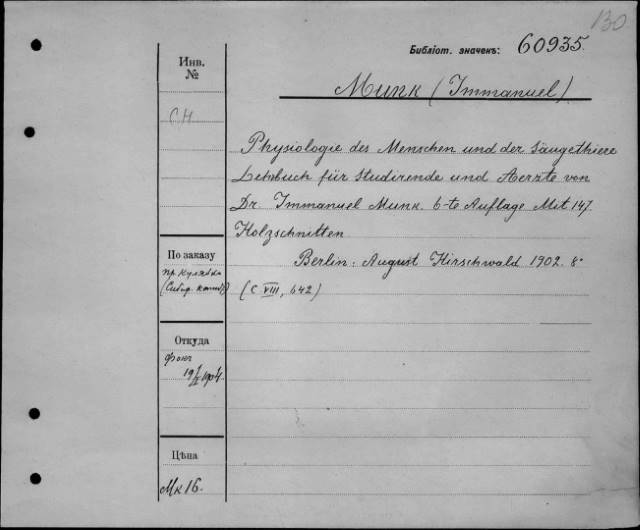 130
Библіот. значекъ: 60935.
Инв.
№
Munk (Immanuel).
CH
Physiologie des Menschen und der Säugethiere
Lehrbuch für Studirende und Aerzte von
Dr Immanuel Munk. 6-te Auflage Mit 147
Holzschnitten
По заказу
Berlin. August Hirschwald 1902. 8°
(C VIII, 642)
Откуда
1904
Цѣна
Mк 16.